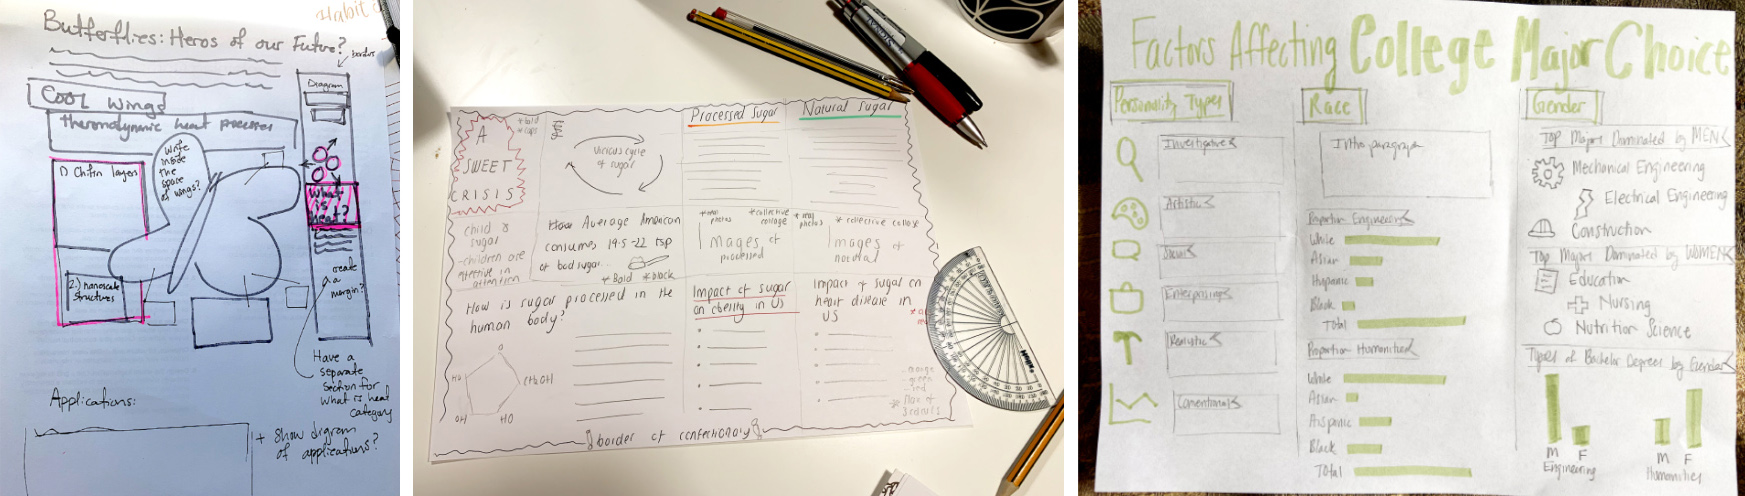 Habit
Butterflies: Heros of our Future?
border
Cool Wings
thermodynamic heat processes
1) Chitin layers
Write
inside
the
space
of wings?
2.) nanoscale
structures
Diagram
What
is
heat?
create
a
margin?
Have a
separate
section for
what is heat
category
Applications:
+ show digram
of applications?
A
SWEET
CRISIS
* bold
* caps
Vicious cycle
of sugar
Processed Sugar
Natural Sugar
child &
sugar
-children are
attention
How Average American
consumes 19.5-22 tsp
of bad sugar...
* Bold * black
* real
photos
* collective
collage
Images of
processed
* real
photos
* collective collage
Images of
natural
How is sugar processed in the
human body?
O
HO
CH2OH
OH
HO
Impact of sugar
on obesity in US
Impact of sugar on
heart disease in
US
orange
green
red
* Max of
3 colours
border of confectionary
Factors Affecting College Major Choice
Personality Types
Investigative
Artistic
Social
Enterprising
Realistic
Conventional
Race
Intro paragraph
Proportion Engineers
White
Asian
Hispanic
Black
Total
Proportion Humanities
White
Asian
Hispanic
Black
Total
Gender
Top Majors Dominated by MEN
Mechanical Engineering
Electrical Engineering
Construction
Top Majors Dominated by WOMEN
Education
Nursing
Nutrition Science
Types of Bachelor Degrees by Gender
M F
Engineering
M F
Humanities